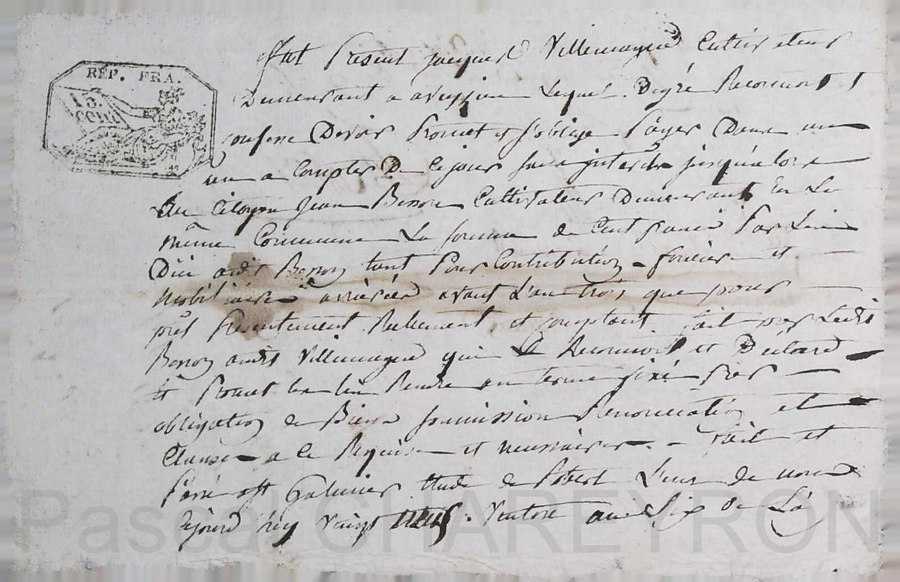 RÉP. FRA.
15.
CCIM
fut Present jacques Villemagne Cultivateur
Demeurant a Lequel Degré Reconnoit
Confesse Devoir Promet et s'oblige Payer Dans un
an a Compter De Ce jour sans interets jusqu'alors
Au Citoyen Jean Benoi Cultivateur Demeurant En La
même Commune La somme De Cent francs Par Lui
Due audit tant Pour Contribution fonciere et
Mobiliaire arriérée avant L'an trois que pour
prêt Presentement Réellement et comptant fait par Ledit
audit Villemagne qui Le Reconnoit et Declare
et Promet Lui Rendre au terme fixé
obligation de Biens soumission Renonciation et
Clause a ce Requise et necessaires. fait et
Passé Etude de L'un de nous
ajourd'huy Vaingt Ventose an Six De La
Pascal CHAREYRON